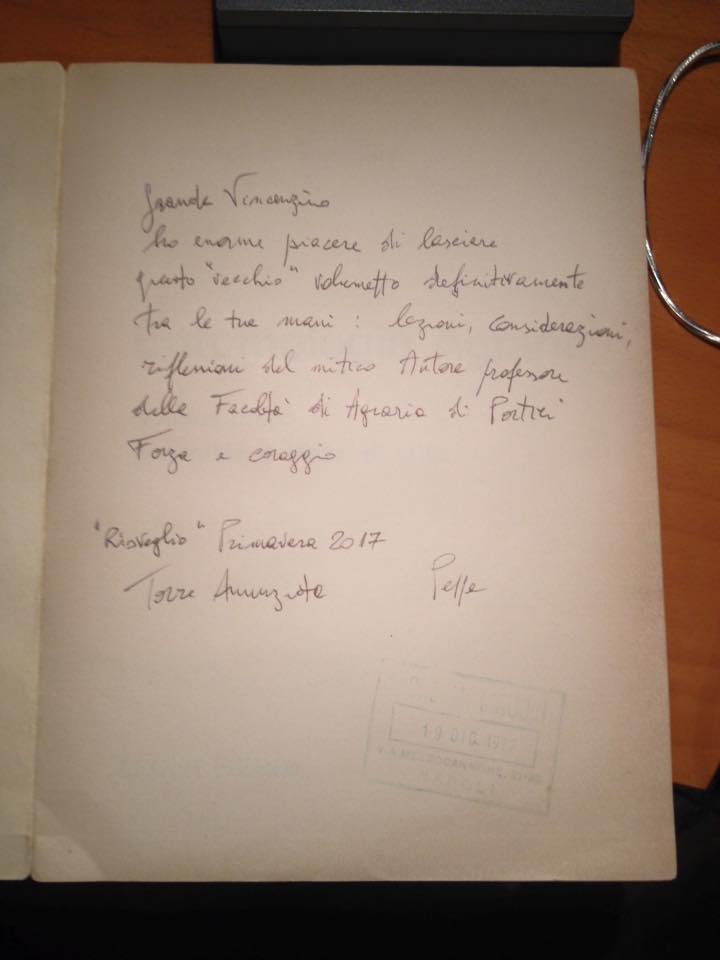 Grande Vincenzino
ho enorme piacere di lasciare
questo "vecchio" volumetto definitivamente
tra le tue mani : lezioni, considerazioni,
riflessioni del mitico Autore professore
della Facoltà di Agraria di Portici
Forza e coraggio
"Risveglio" Primavera 2017
Torre Annunziata
Peppe
19 DIC
MEZZOCANNONE
NAPOLI